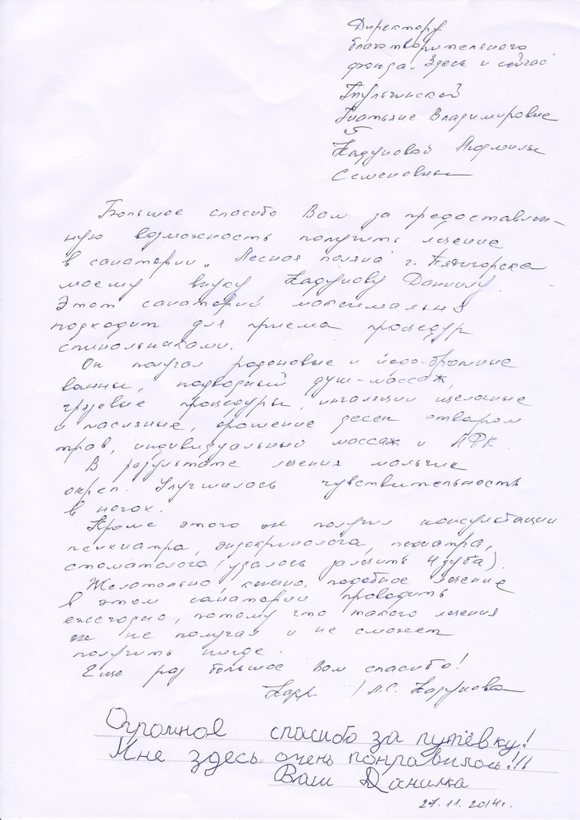 Директору
благотворительного
фонда „Здесь и сейчас"
Тульчинской
Татьяне Владимировне
Кадуковой Людмилы
Семеновны
Большое спасибо Вам за предоставлен-
ную возможность получить лечение
в санатории „Лесная поляна" г. Пятигорска
моему внуку Кадукову Данилу.
Этот санаторий максимально
подходит для приема процедур
спинальниками.
Он получал родоновые и йодо-бромные
ванны, подводный душ-массаж,
грязевые процедуры, ингаляции щелочные
и масляные, орошение десен отваром
трав, индивидуальный массаж и ЛФК.
В результате лечения мальчик
окреп. Улучшалось чувствительность
в ногах.
Кроме этого он получил консультации
психиатра, эндокринолога, педиатра,
стоматолога (удалось залечить 4 зуба).
Желательно, конечно, подобное лечение
в этом санатории проводить
ежегодно, потому что такого лечения
он не получал и не сможет
получить нигде.
Еще раз большое Вам спасибо!
/Л.С. Кадукова
Огромное спасибо за путёвку!
Мне здесь очень понравилось!!!
Ваш Данилка
27.11.2014г.